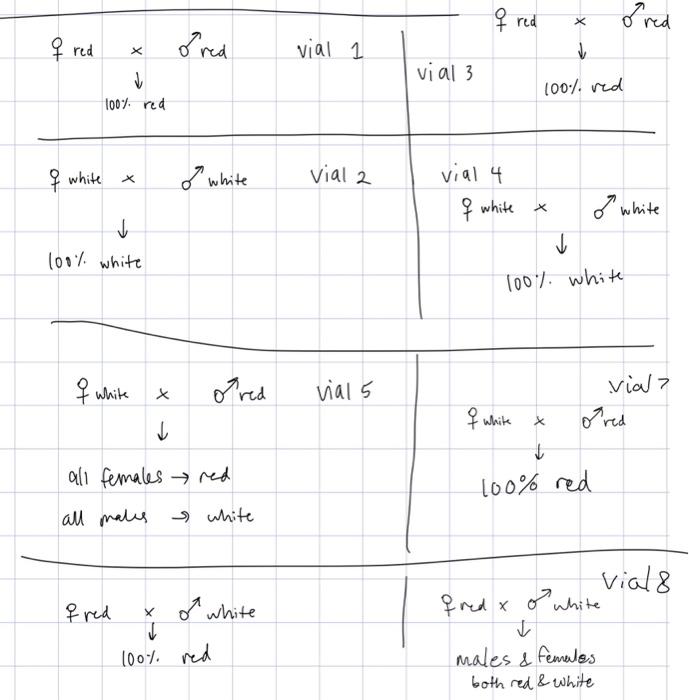 ♀ red × ♂ red vial 1
↓
100% red
♀ red × ♂ red
vial 3 ↓
100% red
♀ white × ♂ white vial 2
↓
100% white
vial 4
♀ white × ♂ white
↓
100% white
♀ white × ♂ red vial 5
↓
all females → red
all males → white
vial 7
♀ white × ♂ red
↓
100% red
♀ red × ♂ white
↓
100% red
vial 8
♀ red × ♂ white
↓
males & females
both red & white